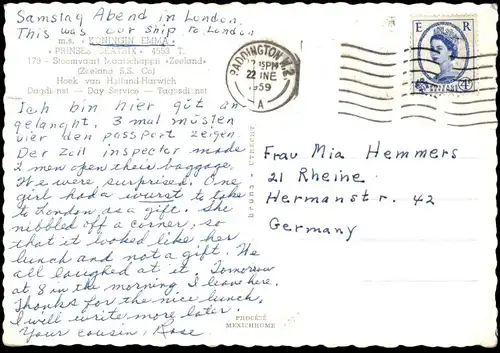 Samstag Abend in London.
This was our ship to London
m.s. „KONINGIN EMMA"
„PRINSES BEATRIX" 4353 T.
179 - Stoomvaart Maatschappij «Zeeland»
(Zeeland S.S. Co)
Hoek van Holland-Harwich
Dagdienst — Day Service — Tagesdienst
Ich bin hier gut an
gelangt. 3 mal müsten
vier den passport zeigen.
Der Zoll inspector made
2 men open their baggage.
We were surprised. One
girl had a wurst to take
to London as a gift. She
nibbled off a corner, so
that it looked like her
lunch and not a gift. We
all laughed at it. Tomorrow
at 8 in the morning I leave here.
Thanks for the nice lunch.
I will write more later.
Your cousin, Rose
bruna - UTRECHT
PROCÉTÉ
MEXICHROME
PADDINGTON W.2
PM
22 JNE
1959
A
E R
POSTAGE
4D
Frau Mia Hemmers
21 Rheine
Hermanstr. 42
Germany